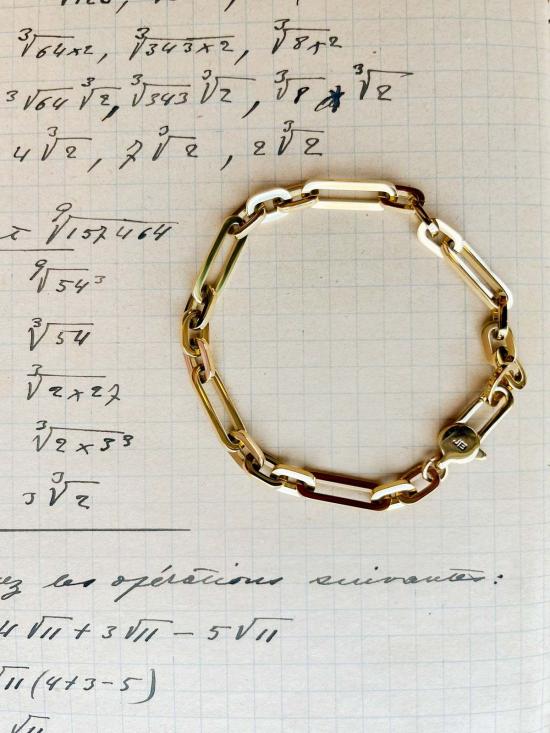 ∛64×2, ∛343×2, ∛8×2
∛64 ∛2, ∛343 ∛2, ∛8 × ∛2
4 ∛2, 7 ∛2, 2 ∛2
⁹√157464
⁹√54³
∛54
∛2×27
∛2×3³
3 ∛2
les opérations suivantes:
4 √11 + 3 √11 − 5 √11
√11 (4+3−5)
√11
JB